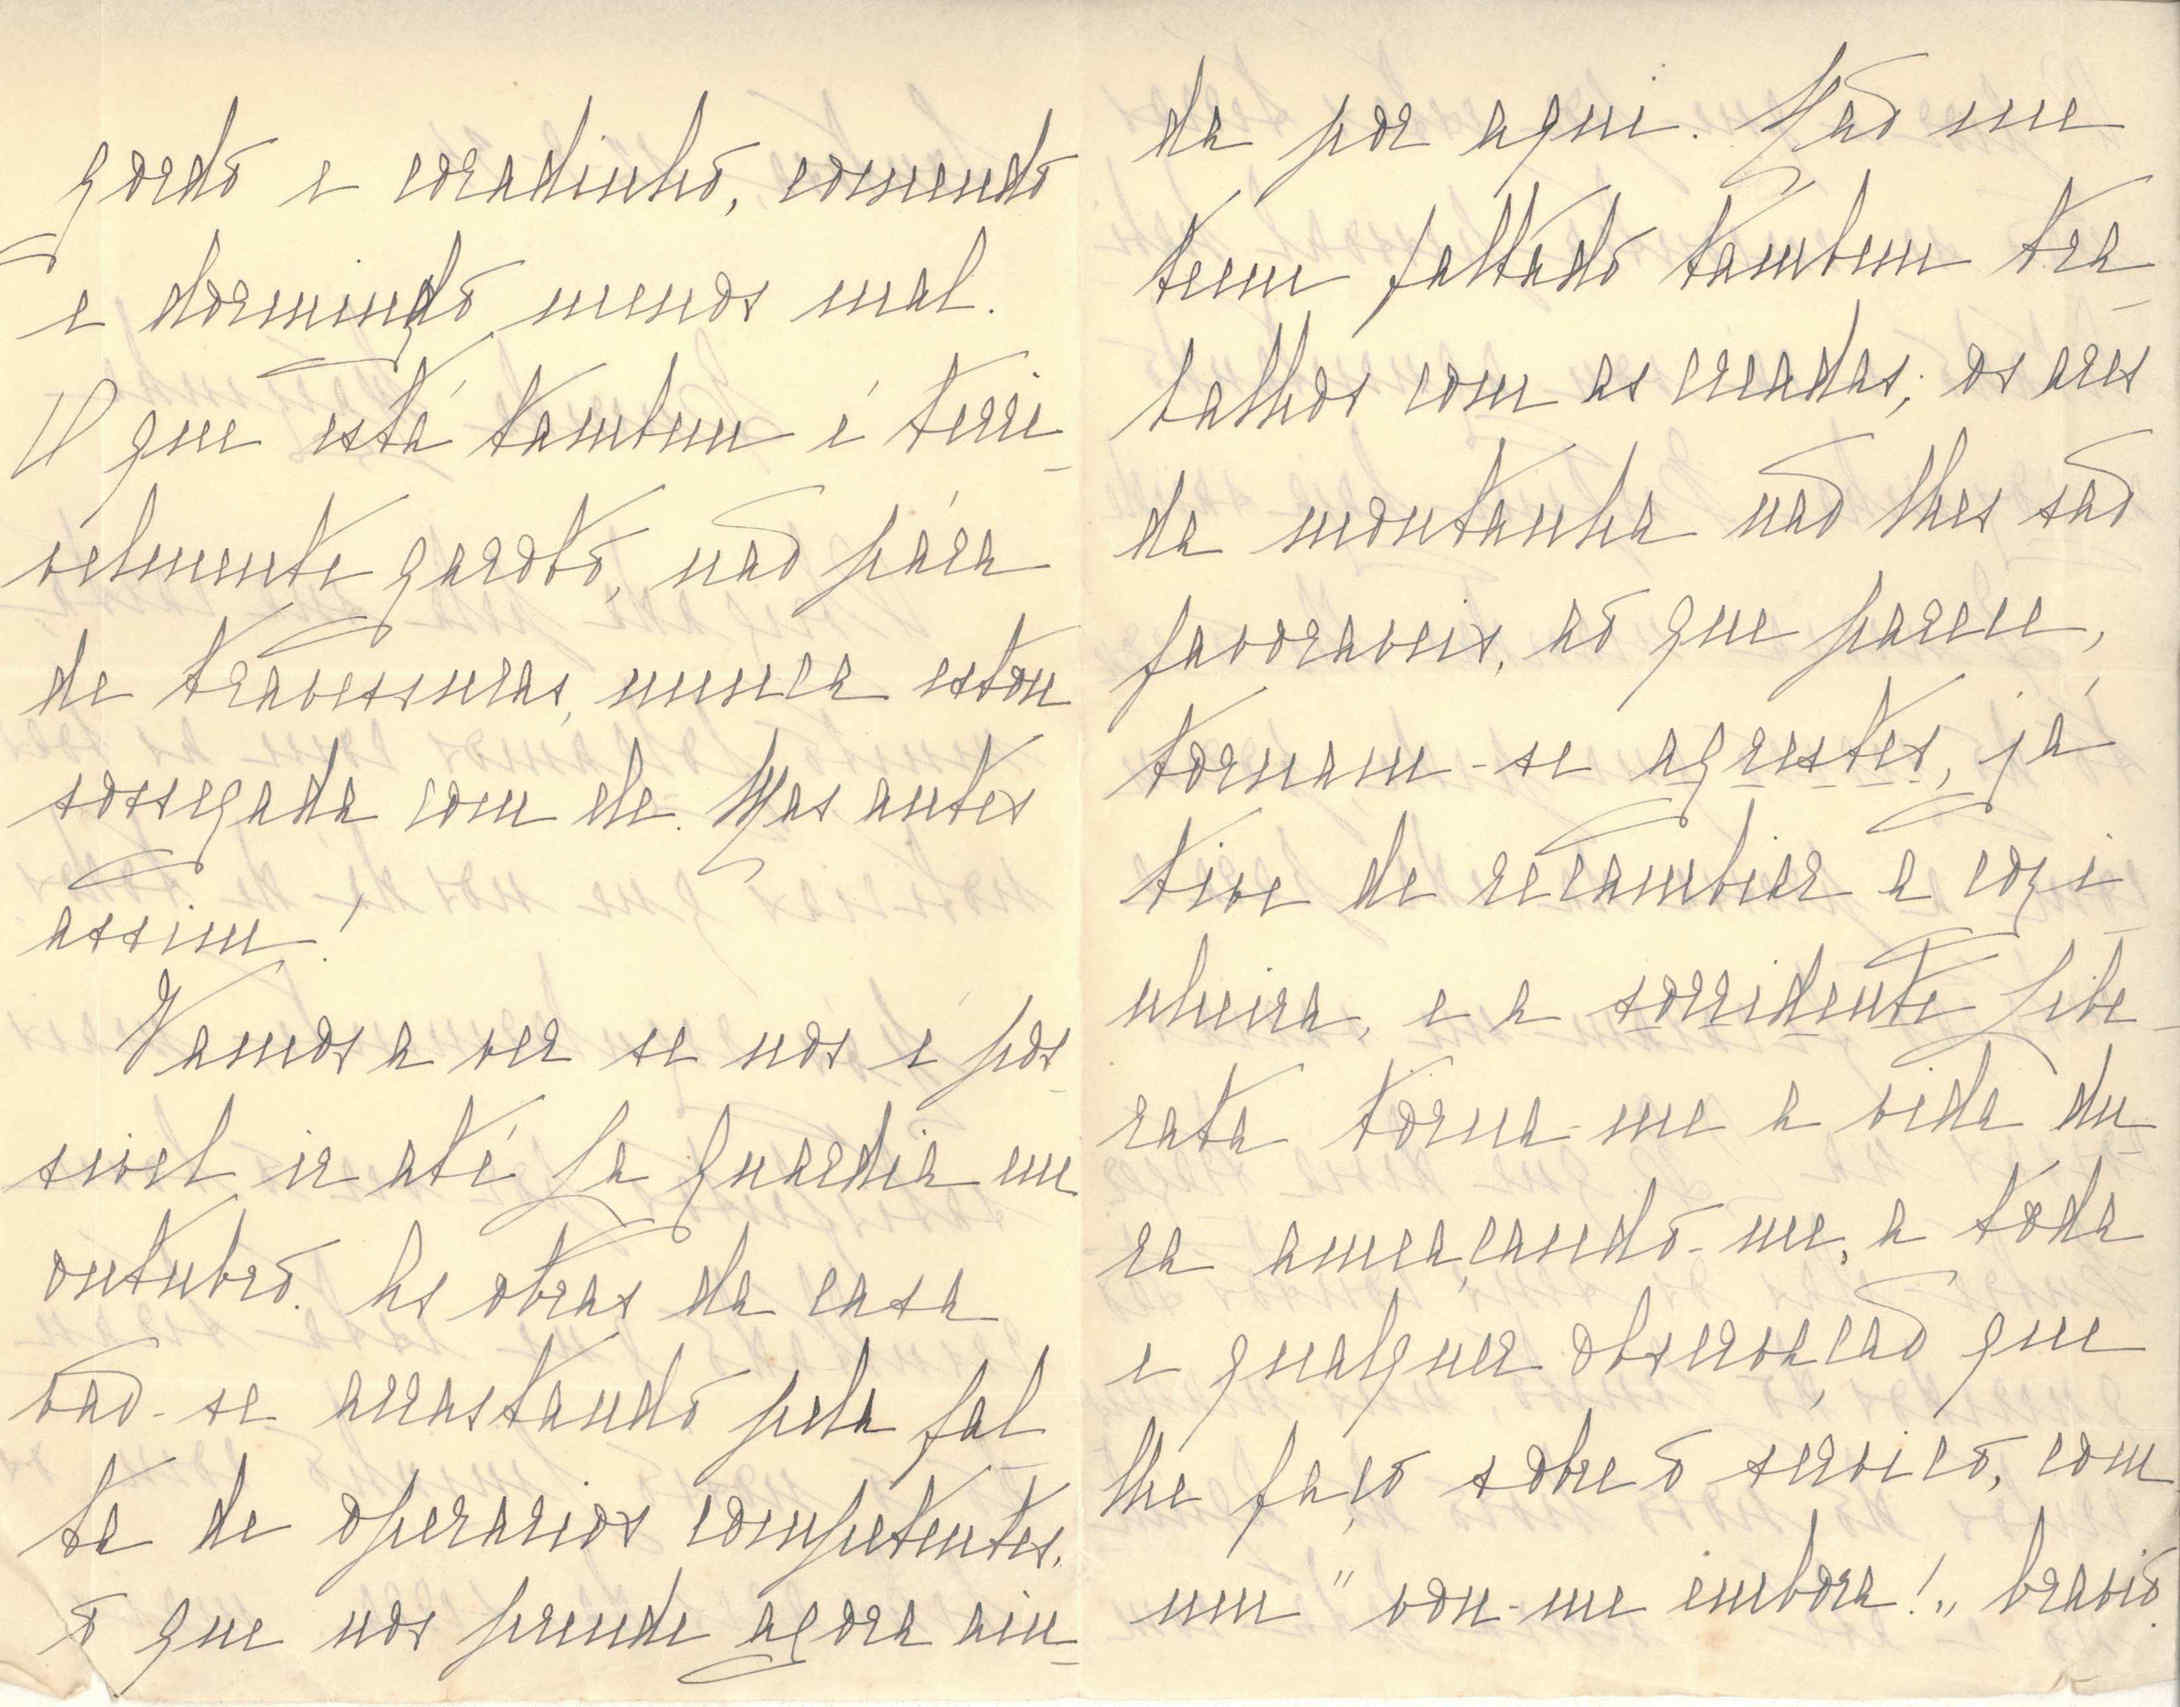 gordo e coradinho, comendo
e dormindo menos mal.
O que está tambem é terri-
velmente garoto, não pára
de travessuras, nunca estou
sossegada com ele. Mas antes
assim!
Vamos a ver se nos é pos-
sivel ir até La Guardia em
outubro. As obras da casa
vão-se arrastando pela fal-
ta de operarios competentes,
o que nos prende agora ain-
da por aqui. Não me
teem faltado tambem tra-
balhos com as creadas; os ares
da montanha não lhes são
favoraveis, ao que parece,
tornam-se agrestes, já
tive de recambiar a cozi-
nheira, e a sorridente Libe-
rata torna-me a vida du-
ra ameaçando-me, a toda
e qualquer observação que
lhe faço sobre o serviço, com
um "vou-me embora!" bravio.